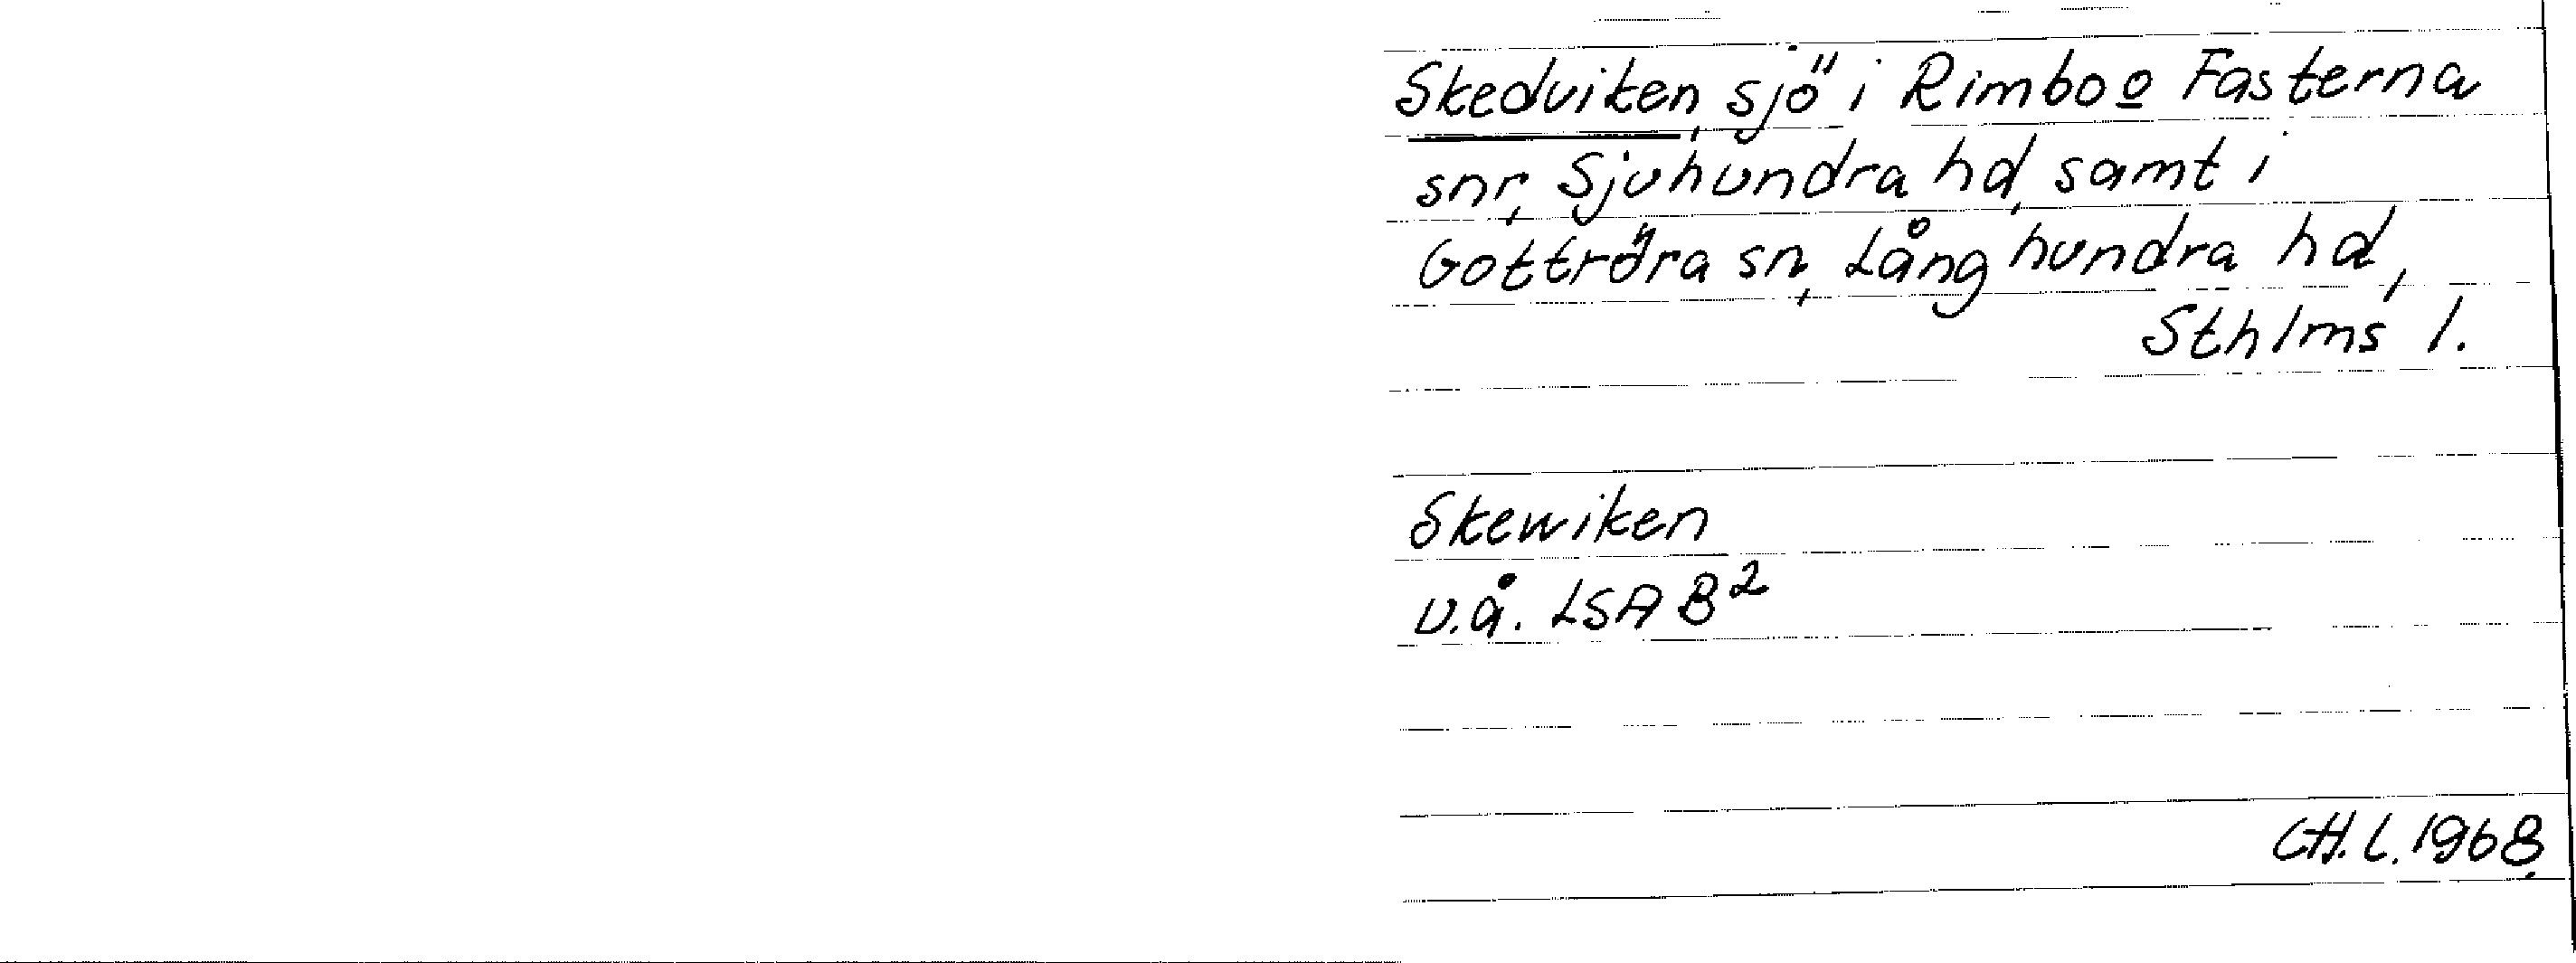 Skedviken, sjö i Rimbo o Fasterna
snr, Sjuhundra hd, samt i
Gottröra sn, Långhundra hd,
Sthlms l.
Skewiken
u.å. LSA B²
CH.L. 1968.